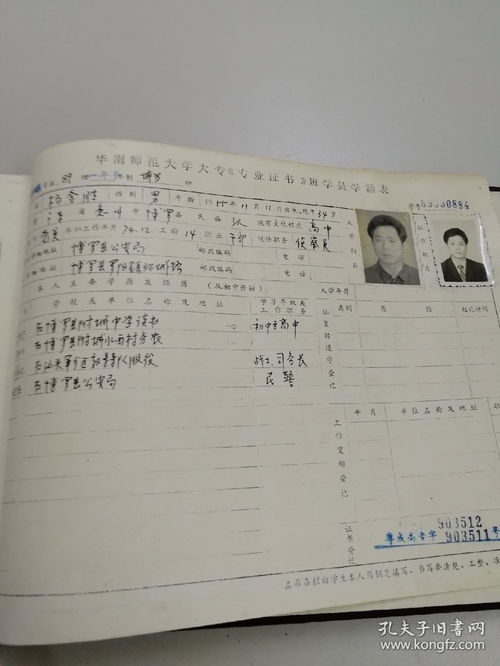 华南师范大学大专《专业证书》班学员学籍表
专业 89 级 一年制 博罗 班
学号 88880884
杨金胜 性别 男 年龄 1955年11月11日出生,现年34岁
广东省惠州市博罗县 民族 汉 现有文化程度 高中
党员 参加工作年月 74.12 工龄 14 职业 干部 现任职务 侦察员
博罗县公安局 邮政编码 电话
博罗县罗阳镇环城路 邮政编码 电话
入学照片
证书照片
本人主要学历及经历(从初中开始) 入学年月
学校或单位名称及地址 学习年级或工作职务
在博罗县附城中学读书 初中至高中
在博罗县附城 村务农
服役 战士、司务长
在博罗县公安局 民警
休复转退学登记
类别 原因 起止时间
工作变动登记
年月 单位名称及地址 职
证书登记
粤成高专字 903511号
903512
左面各栏由学生本人用钢笔填写,书写要清楚、工整、准
孔夫子旧书网
www.kongfz.com